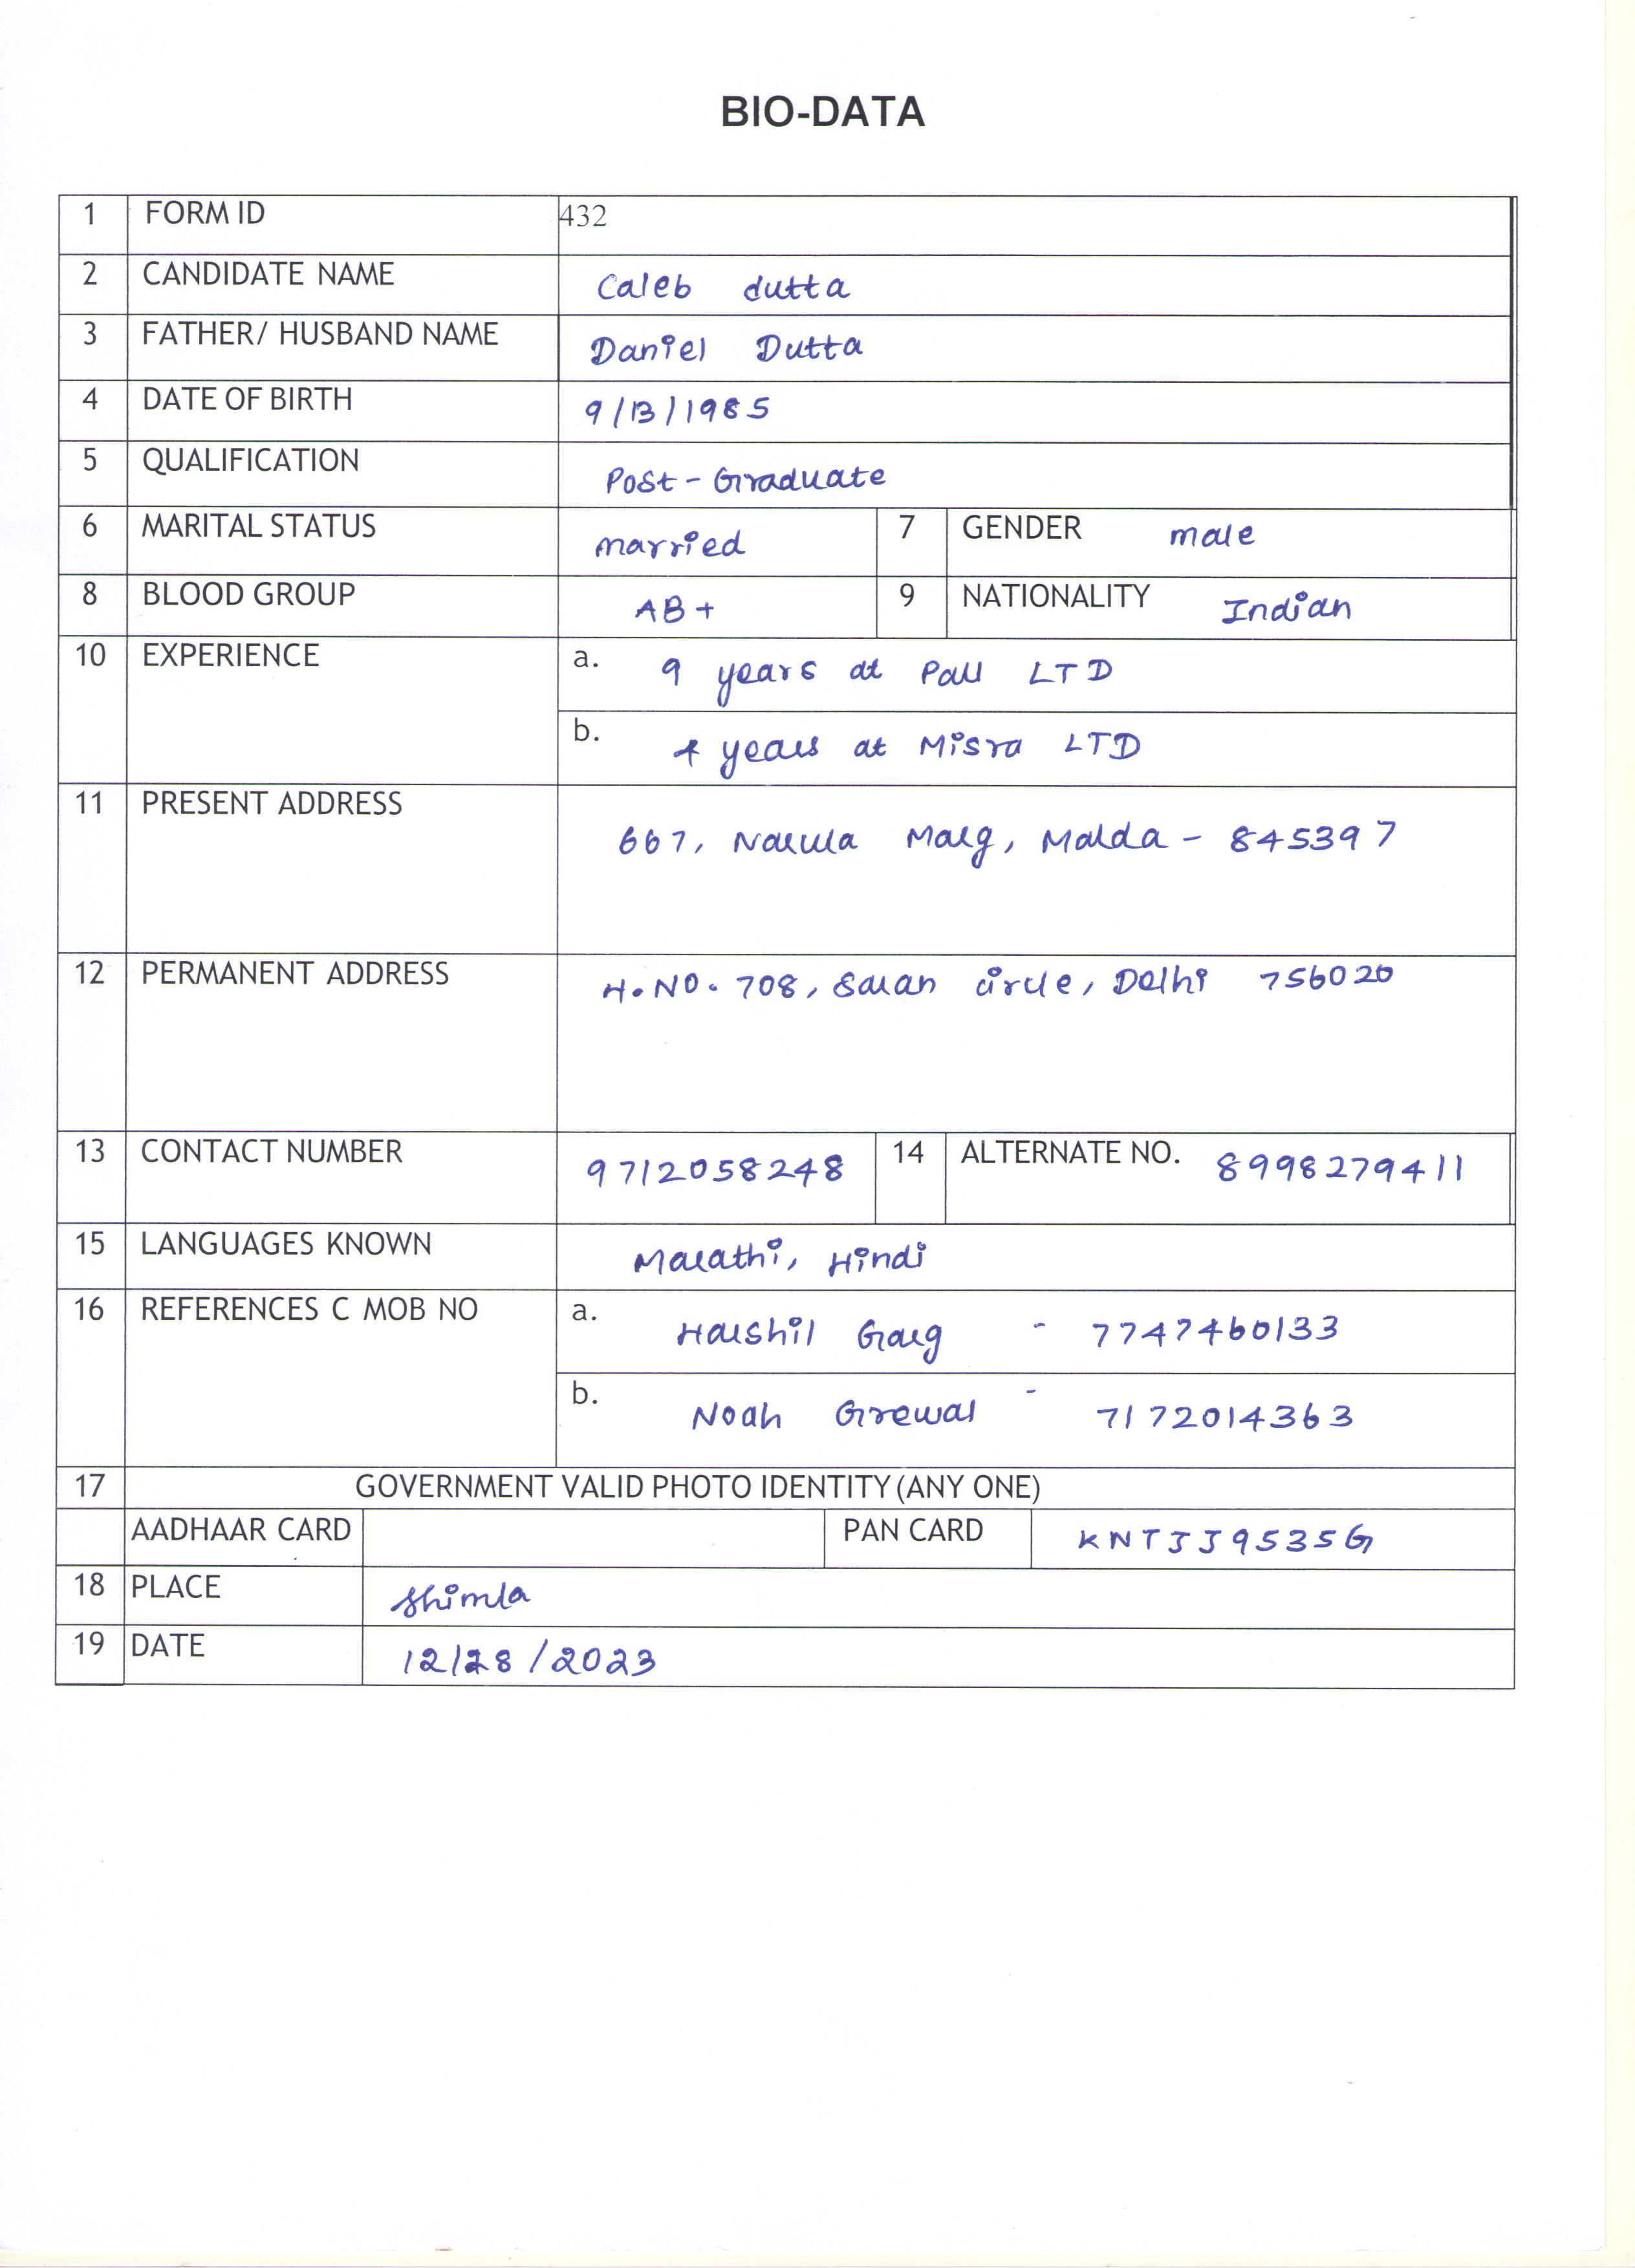 BIO-DATA
1 FORM ID 432
2 CANDIDATE NAME Caleb dutta
3 FATHER/ HUSBAND NAME Daniel Dutta
4 DATE OF BIRTH 9/13/1985
5 QUALIFICATION Post-Graduate
6 MARITAL STATUS married 7 GENDER male
8 BLOOD GROUP AB+ 9 NATIONALITY Indian
10 EXPERIENCE a. 9 years at Pall LTD
b. 4 years at Misra LTD
11 PRESENT ADDRESS 667, Narula Marg, Malda - 845397
12 PERMANENT ADDRESS H.NO. 708, Saran circle, Delhi 756020
13 CONTACT NUMBER 9712058248 14 ALTERNATE NO. 8998279411
15 LANGUAGES KNOWN Marathi, Hindi
16 REFERENCES C MOB NO a. Harshil Garg - 7747460133
b. Noah Grewal - 7172014363
17 GOVERNMENT VALID PHOTO IDENTITY (ANY ONE)
AADHAAR CARD PAN CARD KNTJJ9535G
18 PLACE Shimla
19 DATE 12/28/2023